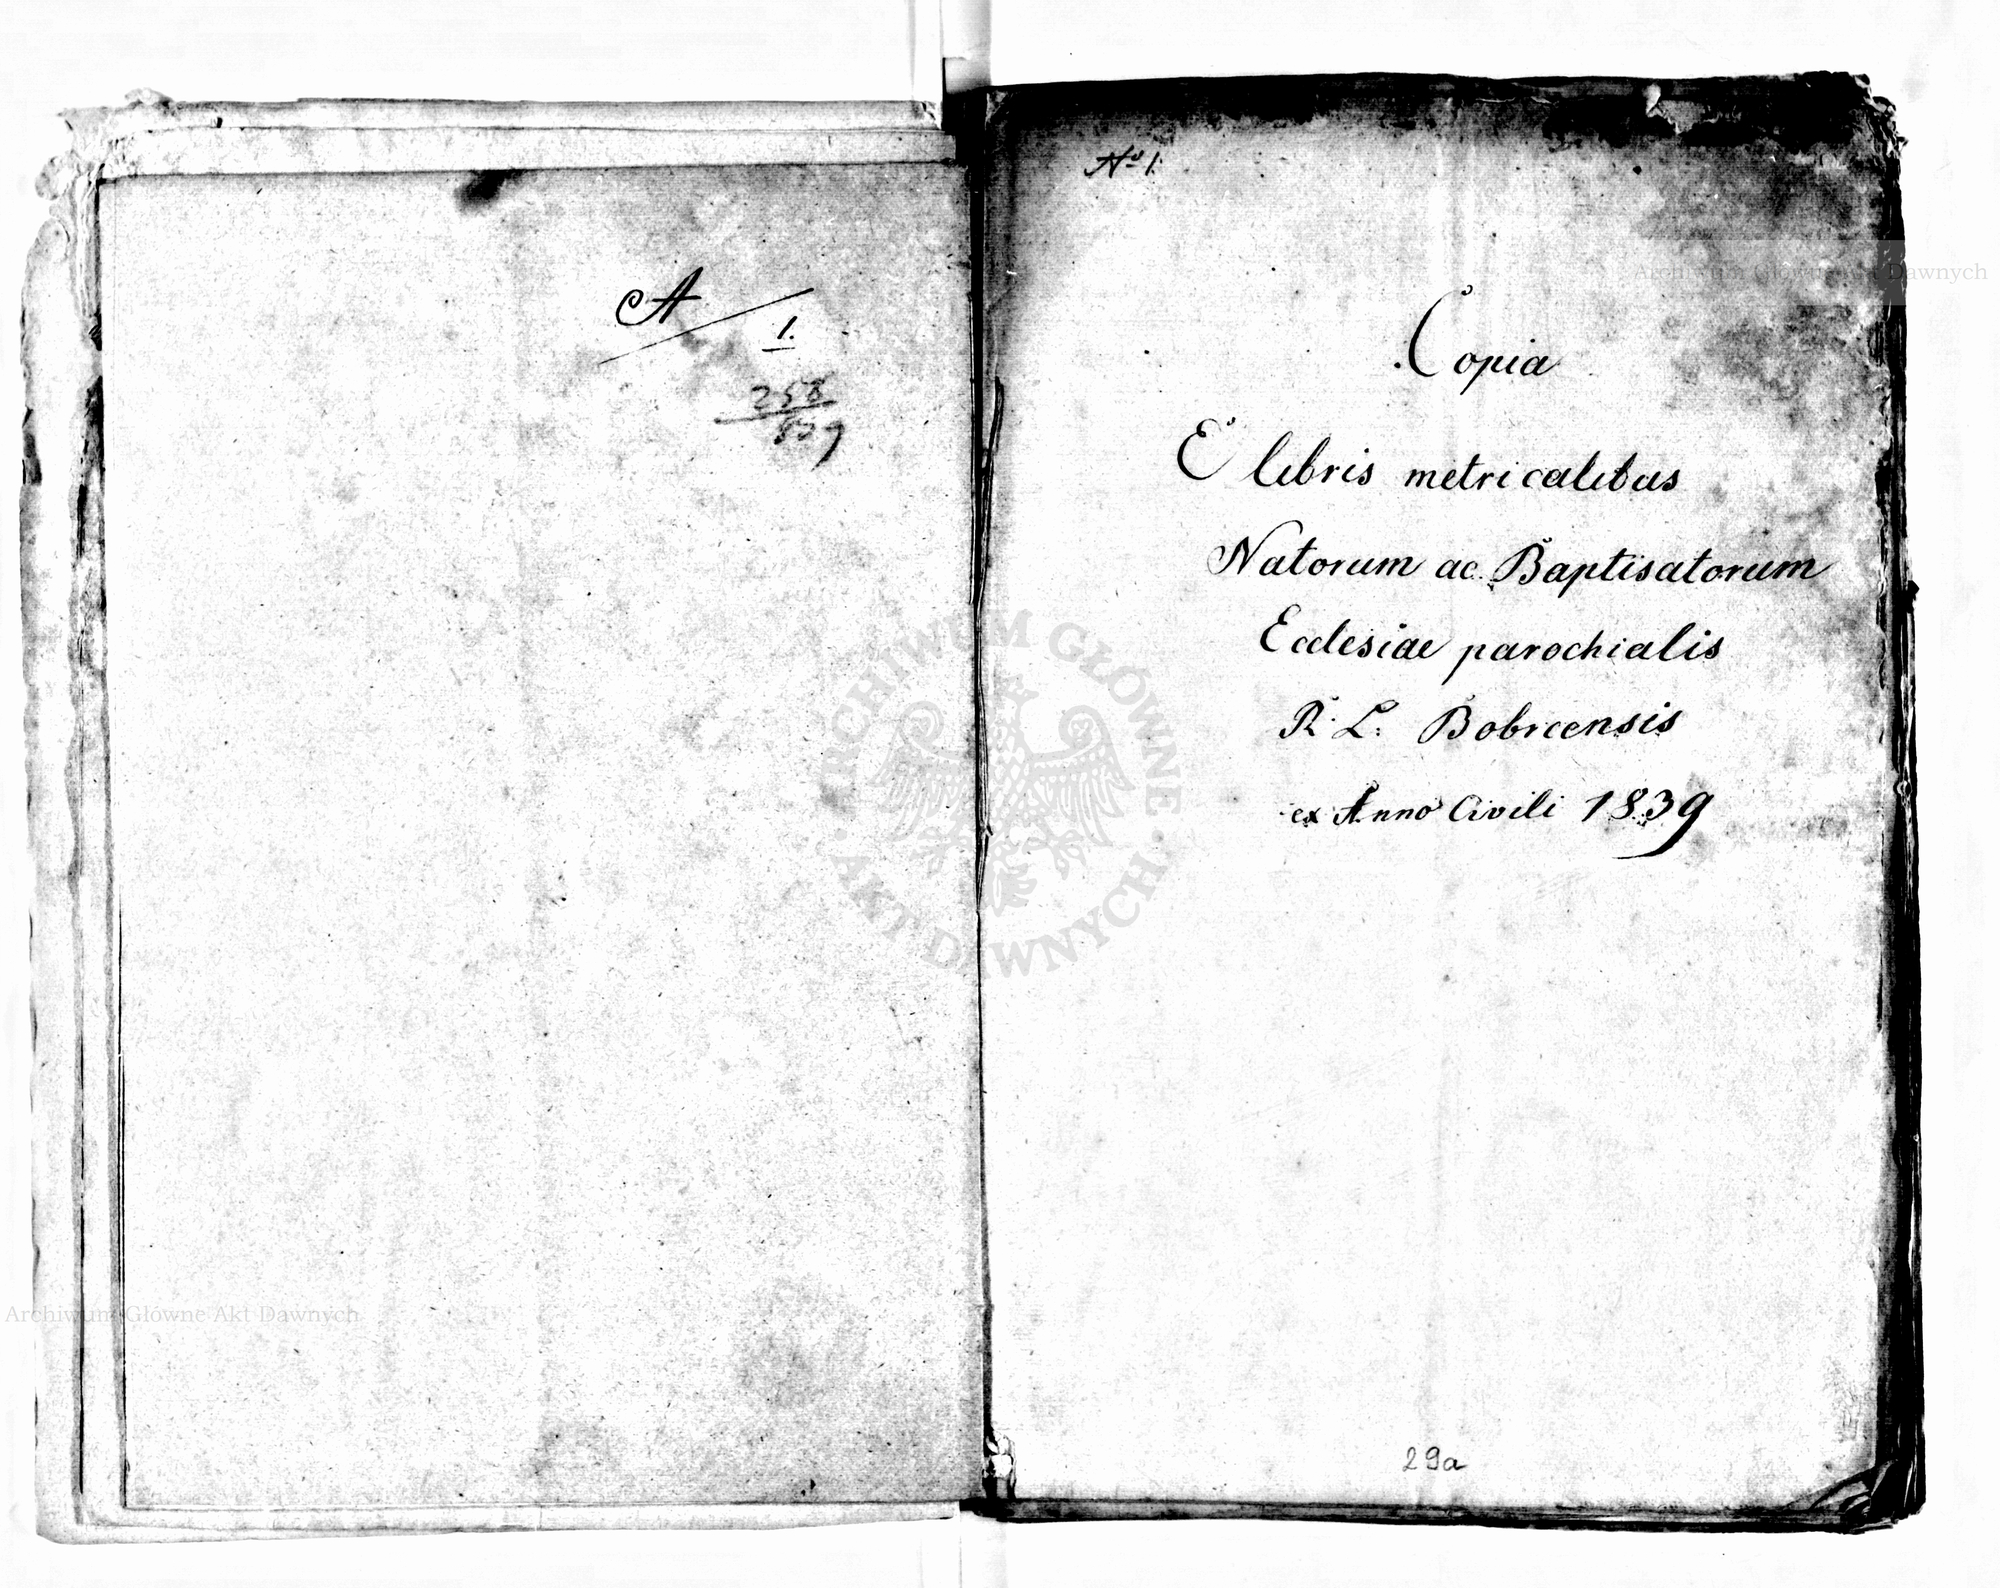 A
1.
258
Nº 1.
Copia
E libris metricalibus
Natorum ac Baptisatorum
Ecclesiae parochialis
R. L. Bobrcensis
ex Anno Civili 1839
29a
ARCHIWUM GŁÓWNE AKT DAWNYCH
Archiwum Główne Akt Dawnych
Archiwum Główne Akt Dawnych